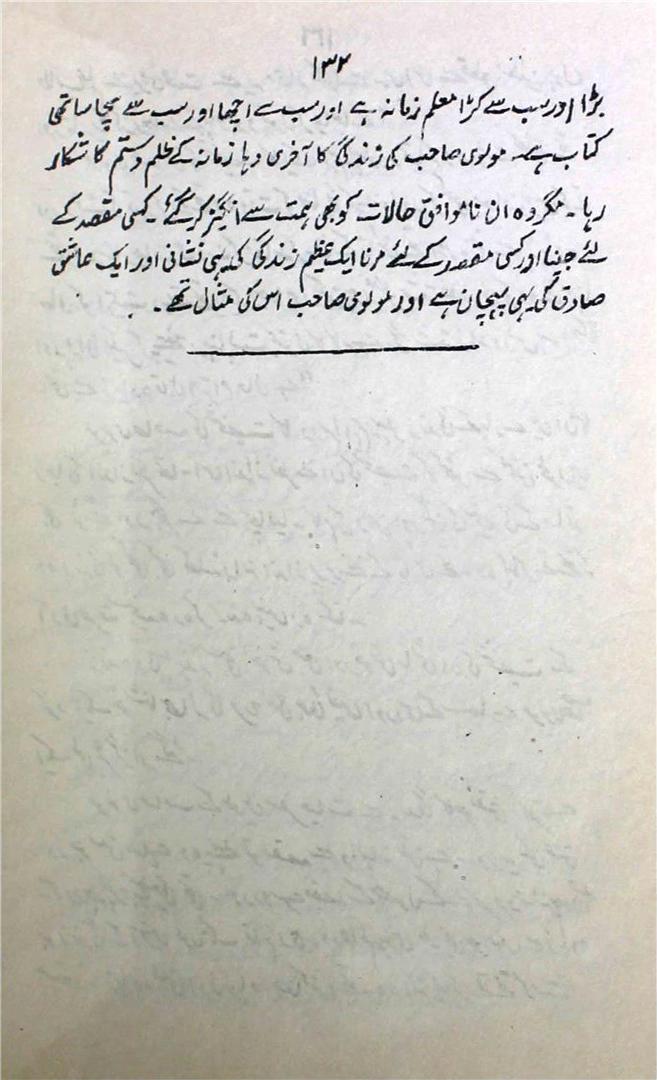 ۱۳۲
بڑا اور سب سے کڑا معلم زمانہ ہے اور سب سے اچھا اور سب سے سچا ساتھی
کتاب ہے۔ مولوی صاحب کی زندگی کا آخری دہا زمانہ کے ظلم و ستم کا شکار
رہا۔ مگر وہ ان ناموافق حالات کو بھی ہمت سے انگیز کر گئے۔ کسی مقصد کے
لئے جینا اور کسی مقصد کے لئے مرنا ایک عظیم زندگی کی یہی نشانی اور ایک عاشق
صادق کی یہی پہچان ہے اور مولوی صاحب اس کی مثال تھے۔